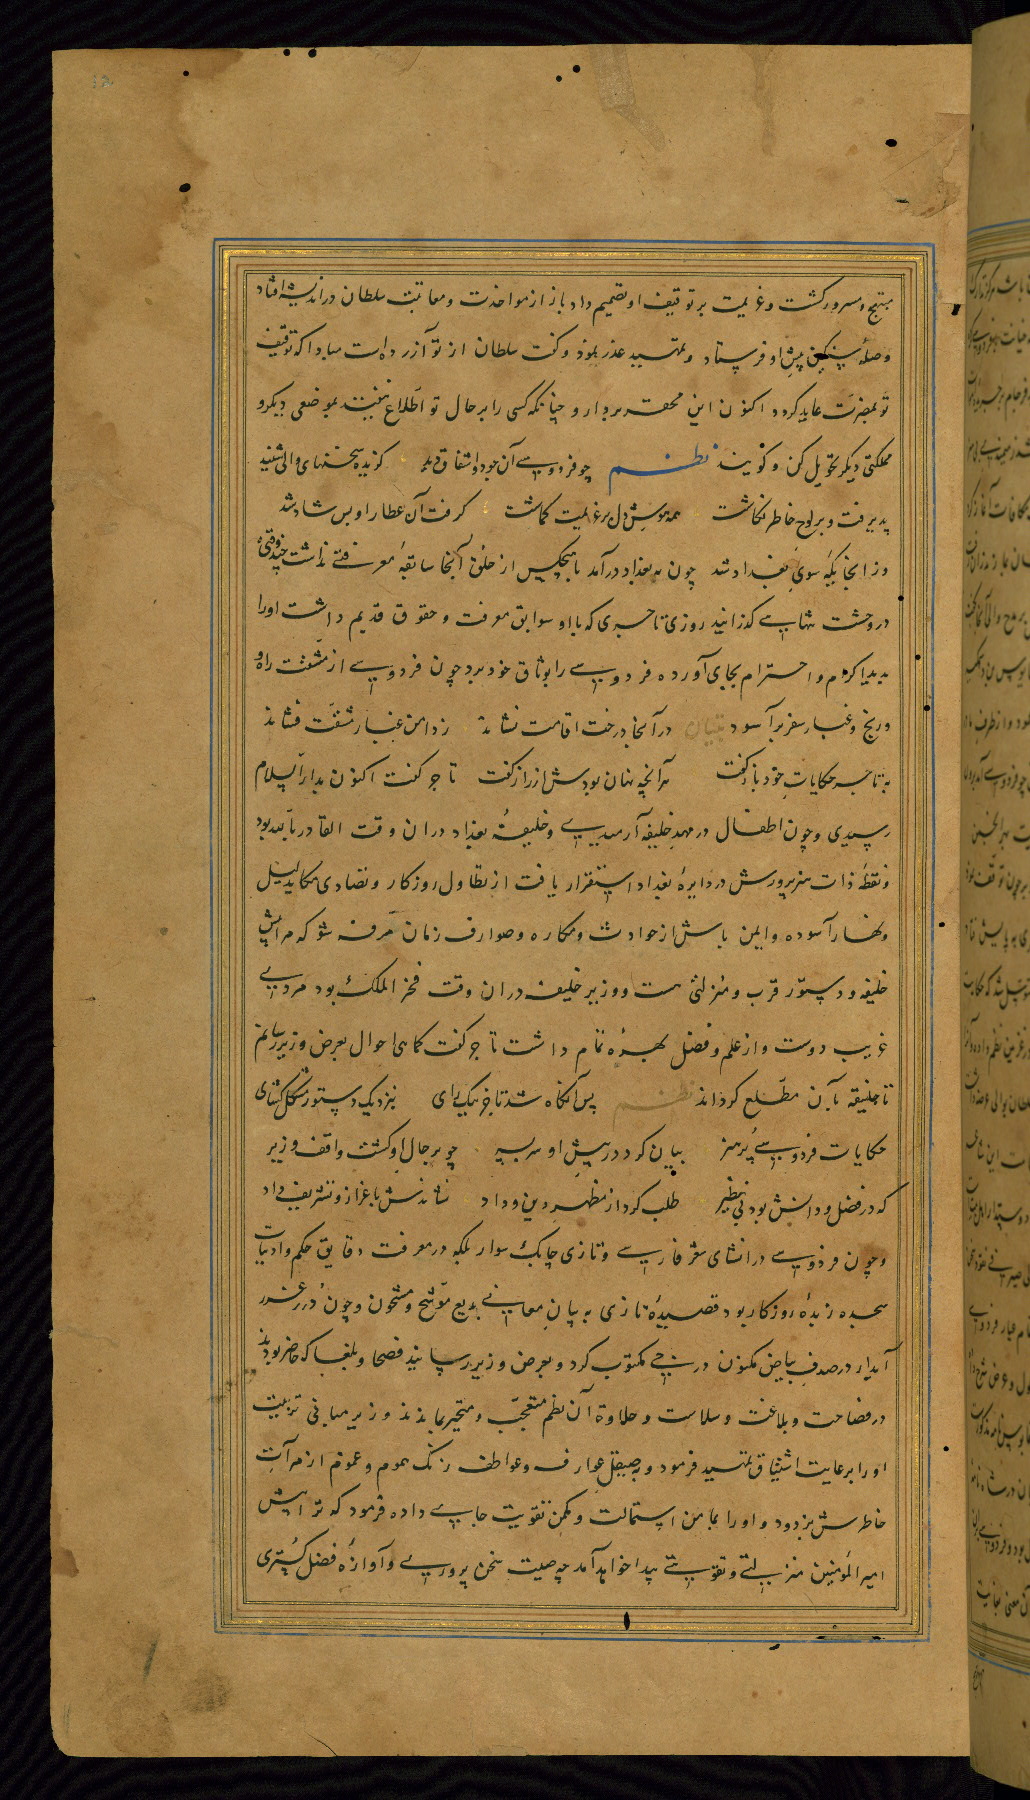 مبتهج و مسرور کشت و عزیمت بر توقیف او تصمیم داد باز از مواخذت و معاتبت سلطان در اندیشه افتاد
وصلهٔ سنکین پیش او فرستاد و تمهید عذر نموذ و کفت سلطان از تو آزرده است مبادا که توقیف
تو بمضرّت عاید کردد اکنون این محقر بردار و چنانکه کسی را بر حال تو اطلاع نیفتد بموضعی دیکر و
مملکتی دیکر تحویل کن و کویند نظم چو فردوسی آن جود و اشفاق دید کزیده سخنهای والی شنید
پذیرفت و بر لوح خاطر نکاشت همه هوش دل بر عزیمت کماشت کرفت آن عطا را و بس شاد شد
وز انجایکه سوی بغداد شد چون به بغداد درآمد با هیچکس از خلق آنجا سابقهٔ معرفتی نداشت چند وقتی
در وحشت تنهایی کذرانید روزی تاجری که با او سوابق معرفت و حقوق قدیم داشت او را
بدید اکرام و احترام بجای آورده فردوسی را بوثاق خود برد چون فردوسی از مشقت راه و
و رنج و غبار سفر برآسود بیان در آنجا درخت اقامت نشاند ز دامن غبار مشقّت فشاند
به تاجر حکایات خود باز کفت هر آنچه نهان بودش از راز کفت تاجر کفت اکنون بدار السلام
رسیدی و چون اطفال در مهد خلیفه آرمیدی و خلیفهٔ بغداد دران وقت القادر بالله بود
و نقطهٔ ذات هنرپرورش در دایرهٔ بغداد استقرار یافت از تطاول روزکار و تصادی مکاید لیل
و نهار آسوده و ایمن باش از حوادث و مکاره و صوارف زمان مرفه شو که مرا پیش
خلیفه و دستور قرب و منزلتی هست و وزیر خلیفه دران وقت فخر الملک بود مردی
غریب دوست و از علم و فضل بهرهٔ تمام داشت تاجر کفت کماهی احوال بعرض وزیر رسانم
تا خلیفه بآن مطّلع کرداند نظم پس آنکاه شد تاجر نیک رای بنزدیک دستور مشکل کشای
حکایات فردوسی پُر هنر بیان کرد در پیش او سر بسر چو بر حال او کشت واقف وزیر
که در فضل و دانش بود بی نظیر طلب کرد از مظهر دین و داد نشاندش باعزاز و تشریف داد
و چون فردوسی در انشای شعر فارسی و تازی چابک سوار بلکه در معرفت دقایق حکم و ادبیات
سنجیده زبدهٔ روزکار بود قصیدهٔ تازی به بیان معانی بدیع موشّح و مشحون و چون دُرر غُرر
آبدار در صدف بیاض مکنون درجی مکتوب کرد و بعرض وزیر رسانید فصحا و بلغا که حاضر بودند
در فصاحت و بلاغت و سلاست و حلاوة آن نظم متعجّب و متحیر بماندند وزیر مبانی تربیت
او را برعایت اشتیاق تمهید فرمود و به صیقل عوارف و عواطف زنک هموم و غموم از مرآت
خاطرش بزدود و او را بمأمن استمالت و مکمن تقویت جای داده فرمود که ترا پیش
امیر المؤمنین منزلتی و تقویتی پیدا خواهد آمد چه صیت سخن پروری و آوازهٔ فضل کستری